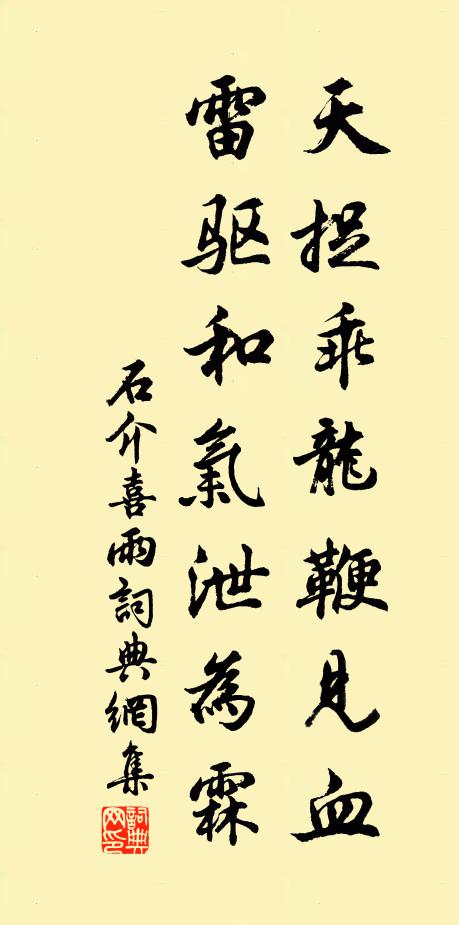 天捉乖龍鞭见血
雷驱和氣泄為霖
石介喜雨詞典網集
詞典网印